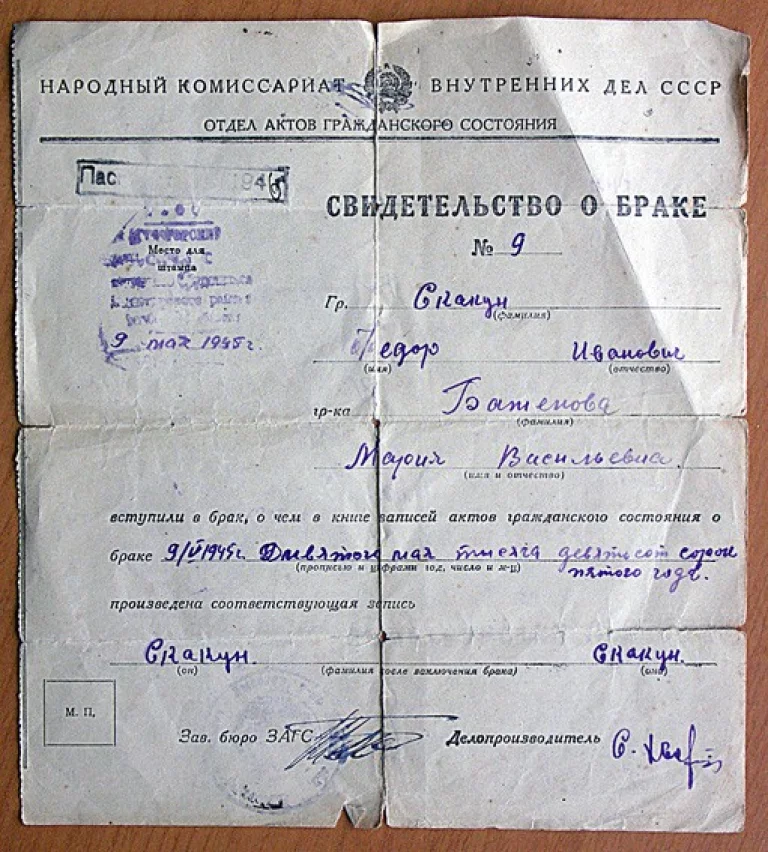 НАРОДНЫЙ КОМИССАРИАТ ВНУТРЕННИХ ДЕЛ СССР
ОТДЕЛ АКТОВ ГРАЖДАНСКОГО СОСТОЯНИЯ
Пас 1945
СВИДЕТЕЛЬСТВО О БРАКЕ
№ 9
Место для
штампа
9 мая 1945 г.
Гр. Скакун
(фамилия)
Федор Иванович
(имя) (отчество)
гр-ка Баженова
(фамилия)
Мария Васильевна
(имя и отчество)
вступили в брак, о чем в книге записей актов гражданского состояния о
браке 9/V 1945г. Девятого мая тысяча девятьсот сорок
(прописью и цифрами год, число и м-ц) пятого года.
произведена соответствующая запись
Скакун. Скакун.
(он) (фамилия после заключения брака) (она)
М. П.
Зав. бюро ЗАГС Делопроизводитель